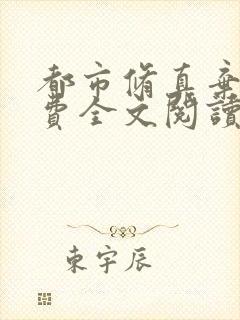 都市脩真棄
費全文閱讀
東宇辰